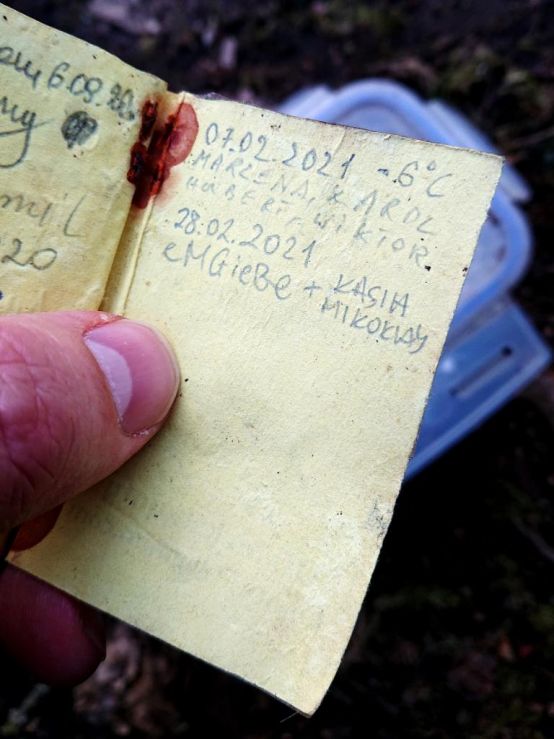 6.09.20
mil
20
07.02.2021 -6°C
MARZENA, KAROL
HUBERT, WIKTOR
28.02.2021
eMGieBe + KASIA
MIKOŁAJ